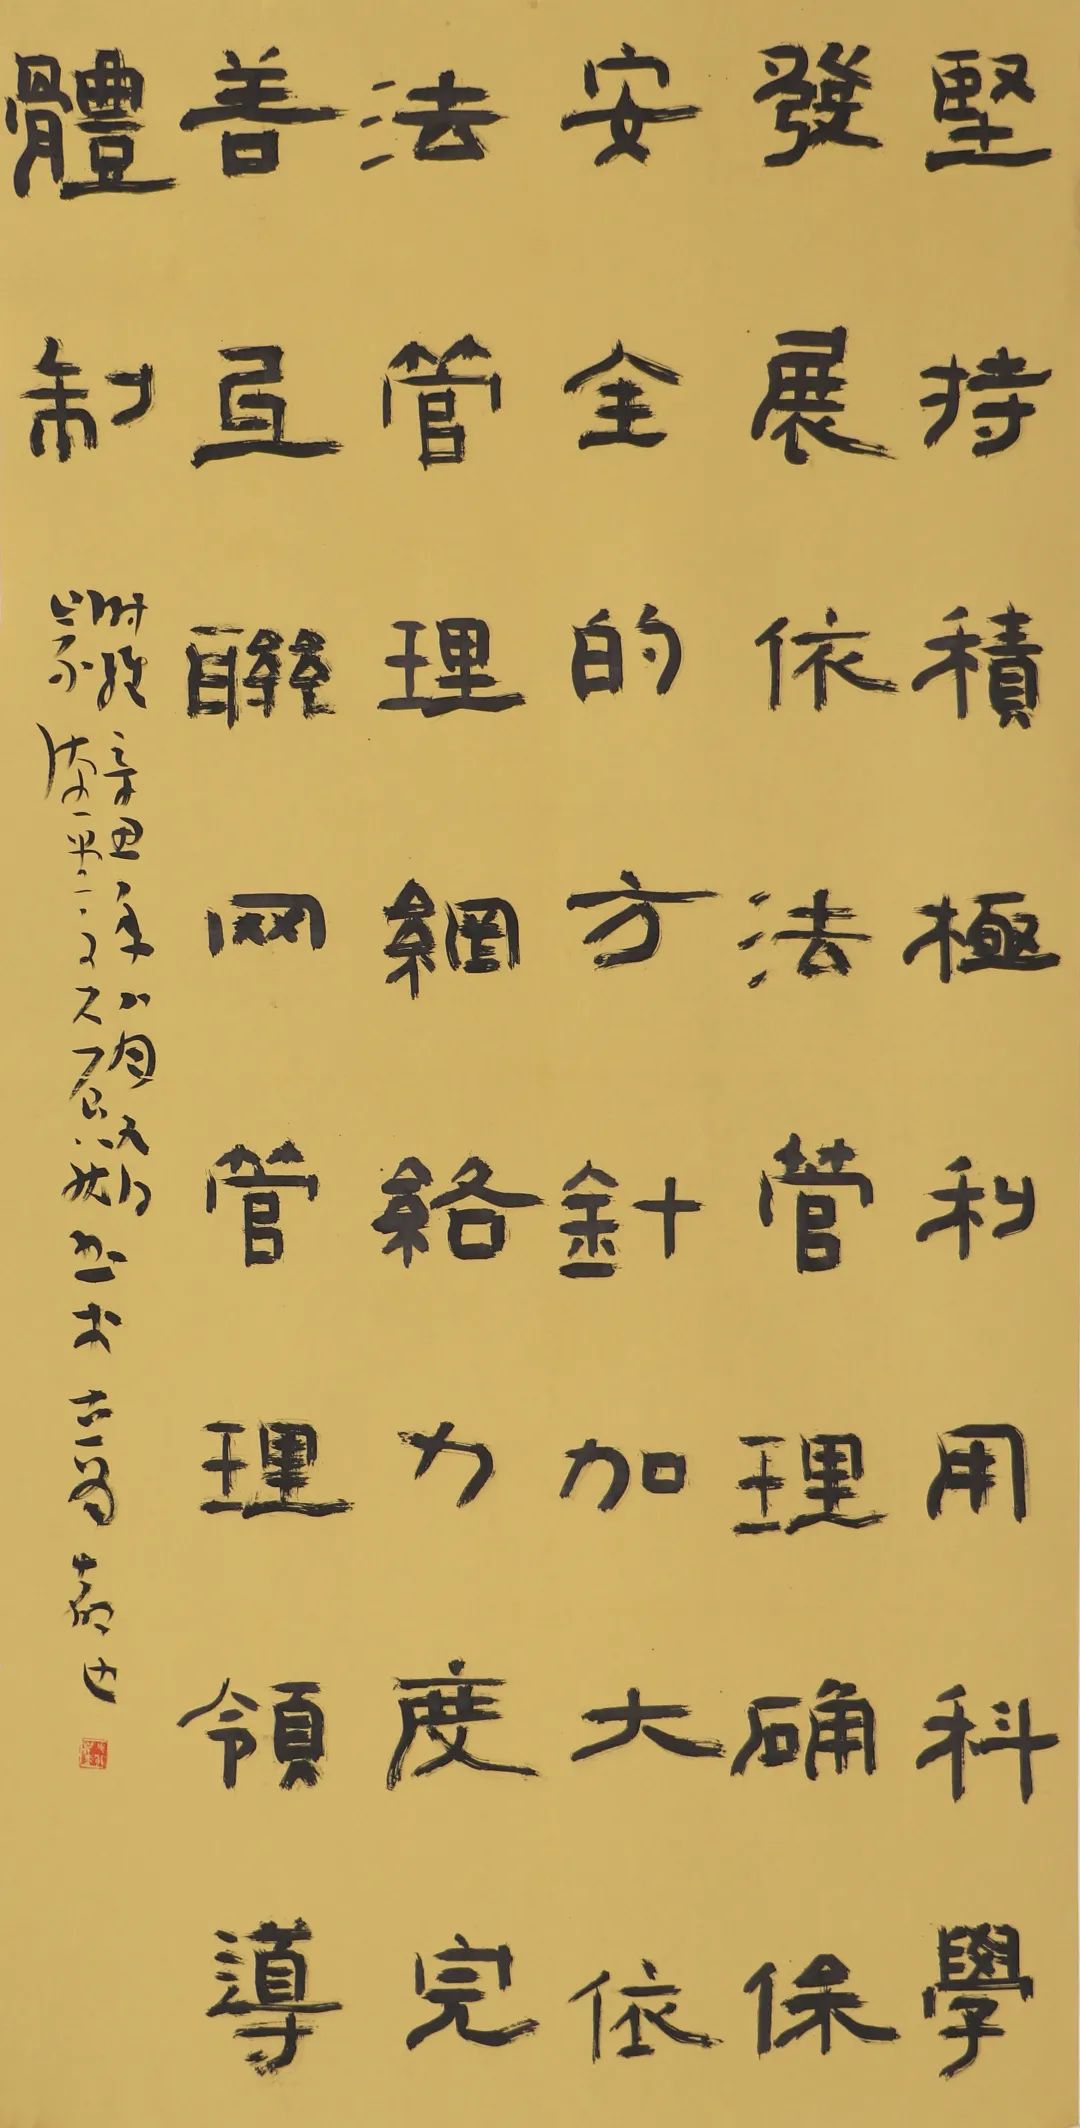 堅持積極利用科學
發展依法管理确保
安全的方針加大依
法管理網絡力度完
善互聯网管理領導
體制
辛丑